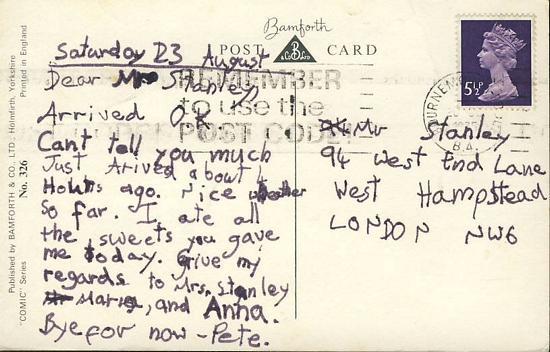 Bamforth
POST CARD
B
& Co Ltd
Published by BAMFORTH & CO. LTD., Holmfirth, Yorkshire
"COMIC" Series
No. 326
Printed in England
Saturday 23 August
Dear Mr Stanley,
Arrived O.K
Can't tell you much
Just Arived about 4
Hours ago. Nice weather
So far. I ate all
the sweets you gave
me today. Give my
regards to Mrs. Stanley
Maria, and Anna.
Bye for now - Pete.
REMEMBER
to use the
POST CODE
5½P
B.A.
Mr Stanley
94 West End Lane
West Hampstead
LONDON NW6